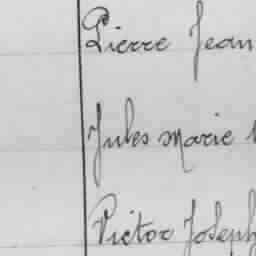 Pierre Jean
Jules Marie
Victor Joseph